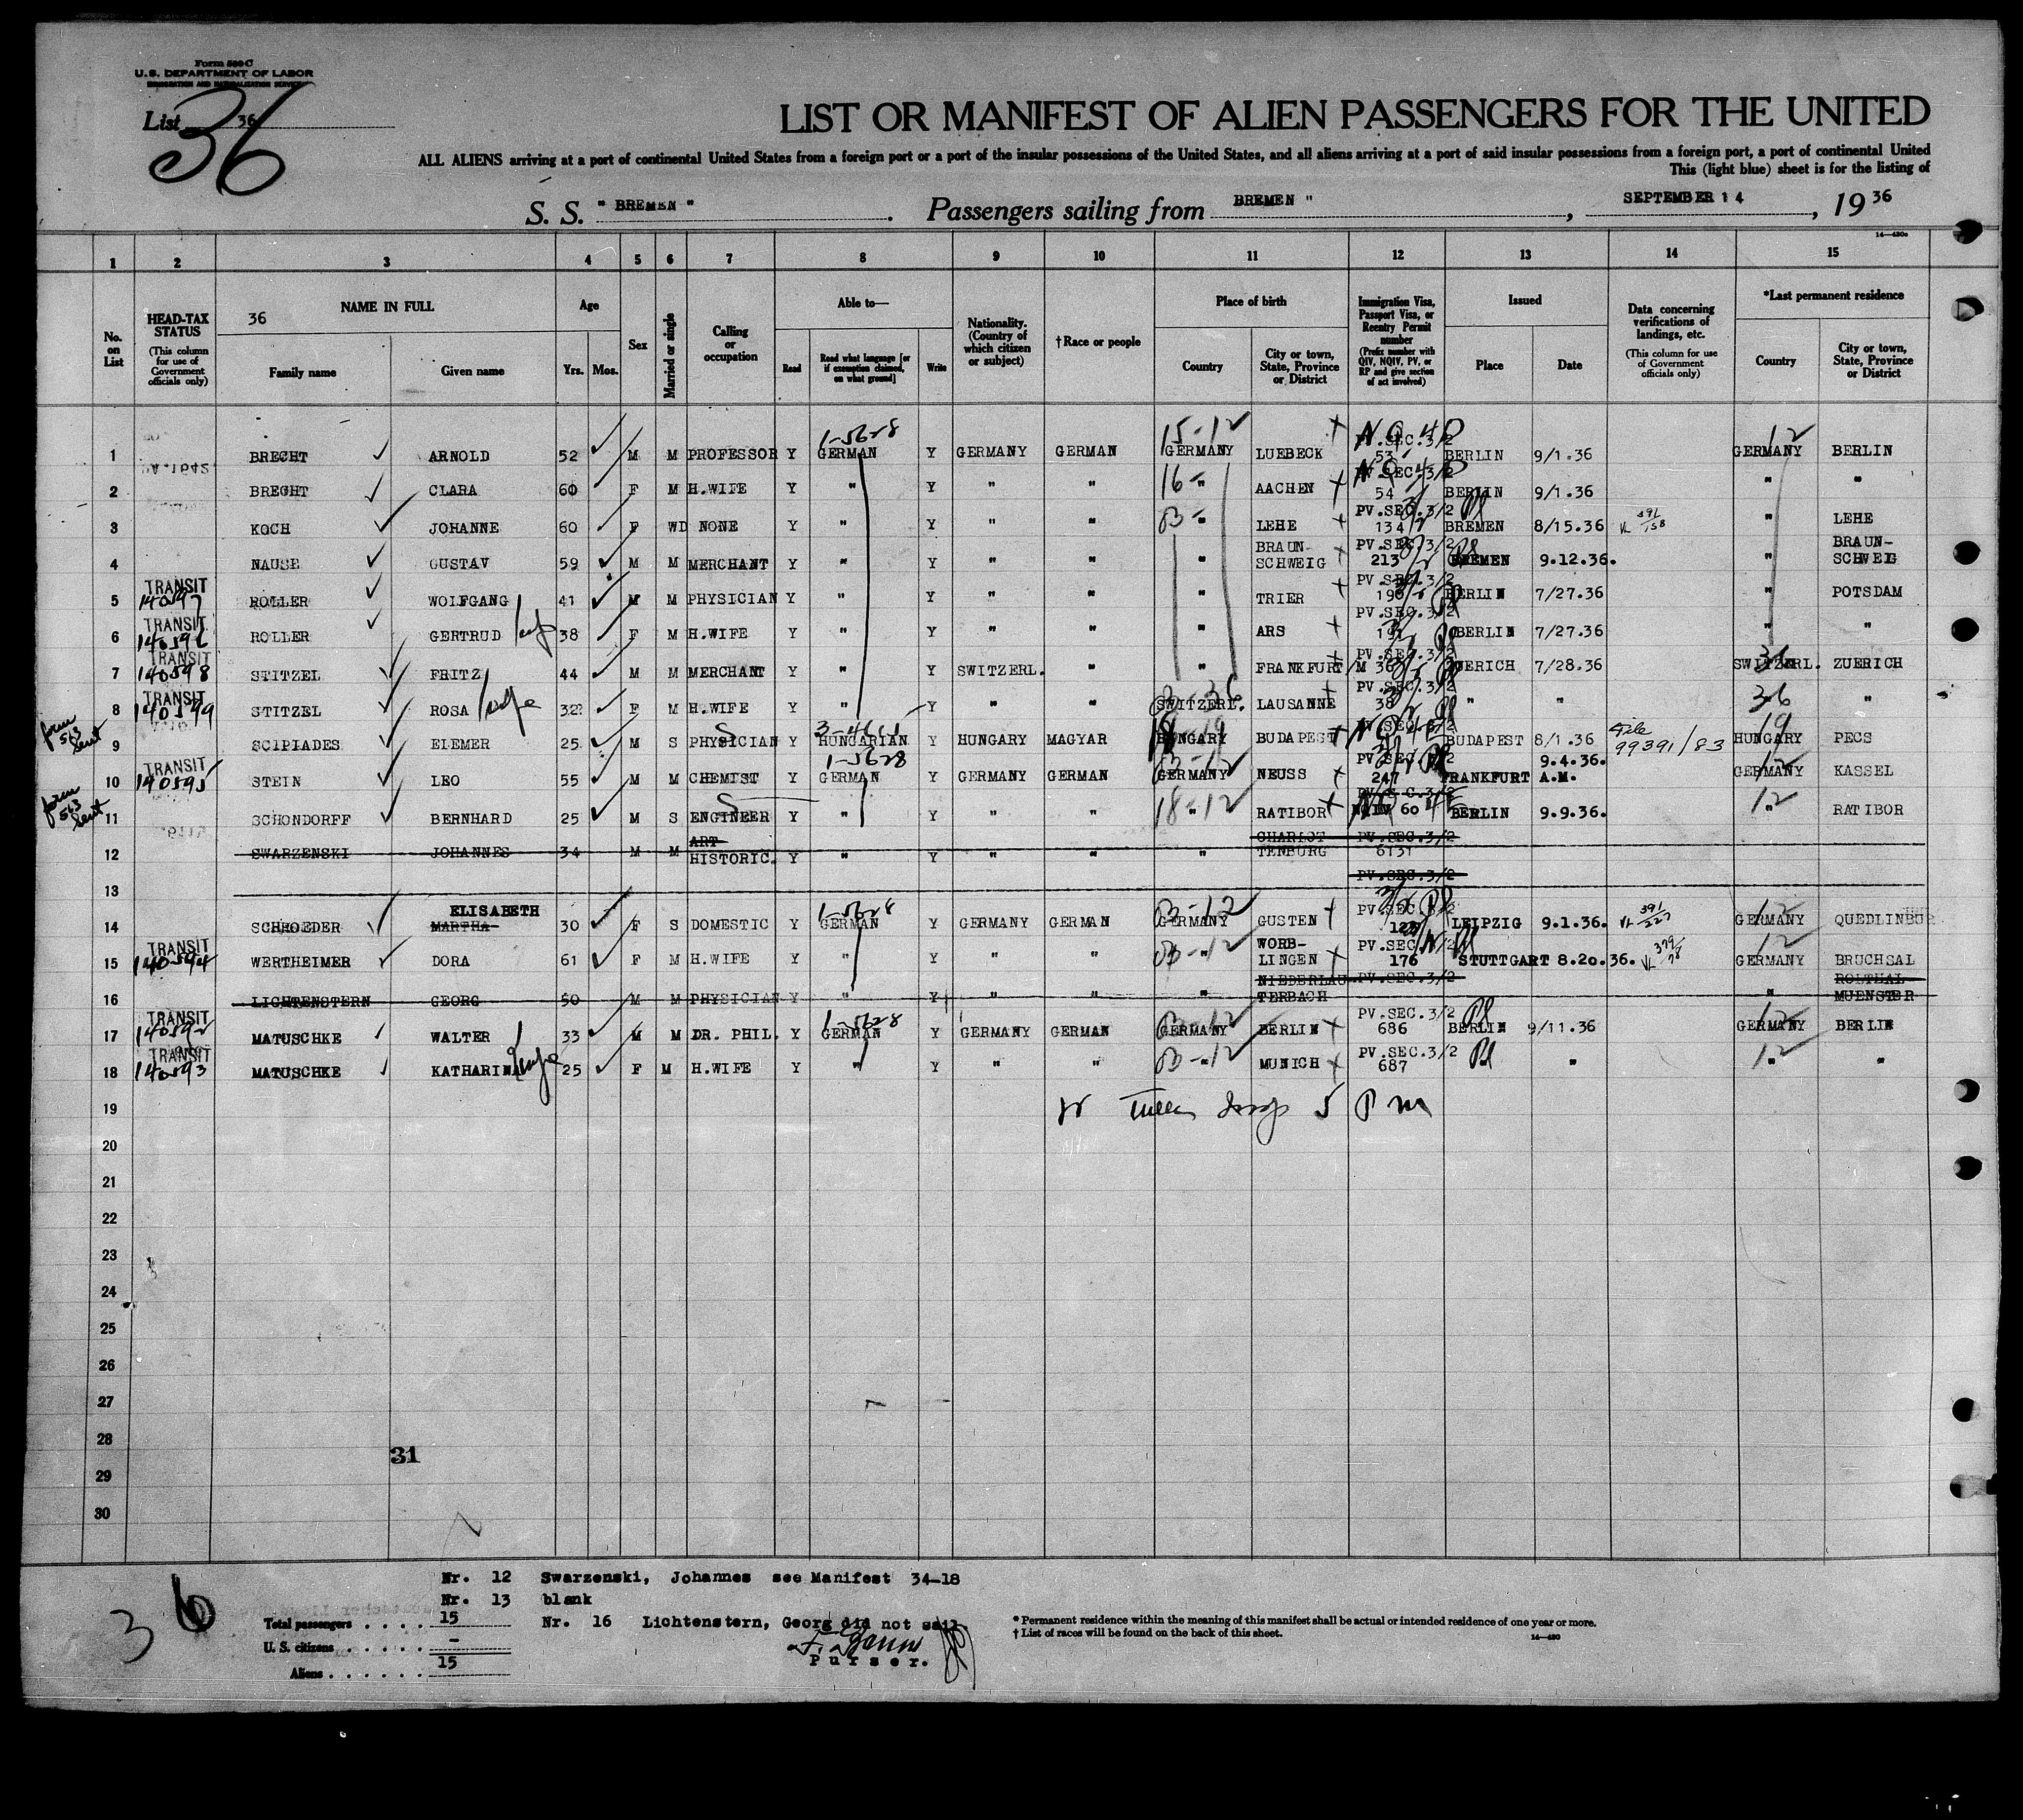 Form 500 C
U.S. DEPARTMENT OF LABOR
IMMIGRATION AND NATURALIZATION SERVICE
List 36
36
LIST OR MANIFEST OF ALIEN PASSENGERS FOR THE UNITED
ALL ALIENS arriving at a port of continental United States from a foreign port or a port of the insular possessions of the United States, and all aliens arriving at a port of said insular possessions from a foreign port, a port of continental United
This (light blue) sheet is for the listing of
S. S. " BREMEN " . Passengers sailing from BREMEN " , SEPTEMBER 14 , 19 36
1 2 3 4 5 6 7 8 9 10 11 12 13 14 15
No. on List
HEAD-TAX STATUS
(This column for use of Government officials only)
36 NAME IN FULL
Family name Given name
Age
Yrs. Mos.
Sex
Married or single
Calling or occupation
Able to—
Read
Read what language [or if exemption claimed, on what ground]
Write
Nationality. (Country of which citizen or subject)
†Race or people
Place of birth
Country
City or town, State, Province or District
Immigration Visa, Passport Visa, or Reentry Permit number
(Prefix number with QIV, NQIV, PV, or RP and give section of act involved)
Issued
Place Date
Data concerning verifications of landings, etc.
(This column for use of Government officials only)
*Last permanent residence
Country
City or town, State, Province or District
1 BRECHT ARNOLD 52 M M PROFESSOR Y GERMAN Y GERMANY GERMAN GERMANY LUEBECK PV.SEC.3/2 53 BERLIN 9/1.36 GERMANY BERLIN
2 BRECHT CLARA 60 F M H.WIFE Y " Y " " " AACHEN PV.SEC.3/2 54 BERLIN 9/1.36 " "
3 KOCH JOHANNE 60 F WD NONE Y " Y " " " LEHE PV.SEC.3/2 134 BREMEN 8/15.36 VL 391/158 " LEHE
4 NAUSE GUSTAV 59 M M MERCHANT Y " Y " " " BRAUN-SCHWEIG PV.SEC.3/2 213 BREMEN 9.12.36. " BRAUN-SCHWEIG
5 TRANSIT 140597 ROLLER WOLFGANG 41 M M PHYSICIAN Y " Y " " " TRIER PV.SEC.3/2 BERLIN 7/27.36 " POTSDAM
6 TRANSIT 140596 ROLLER GERTRUD 38 F M H.WIFE Y " Y " " " ARS PV.SEC.3/2 BERLIN 7/27.36 " "
7 TRANSIT 140598 STITZEL FRITZ 44 M M MERCHANT Y " Y SWITZERL. " " FRANKFURT/M PV.SEC.3/2 36 ZUERICH 7/28.36 SWITZERL. ZUERICH
8 TRANSIT 140599 STITZEL ROSA wife 32 F M H.WIFE Y " Y " " SWITZERL. LAUSANNE PV.SEC.3/2 38 " " 36 "
form 563 sent
9 SCIPIADES ELEMER 25 M S PHYSICIAN Y HUNGARIAN Y HUNGARY MAGYAR HUNGARY BUDAPEST BUDAPEST 8/1.36 File 99391/83 HUNGARY PECS
10 TRANSIT 140595 STEIN LEO 55 M M CHEMIST Y GERMAN Y GERMANY GERMAN GERMANY NEUSS PV.SEC.3/2 247 FRANKFURT A.M. 9.4.36. GERMANY KASSEL
form 563 sent
11 SCHONDORFF BERNHARD 25 M S ENGINEER Y " Y " " " RATIBOR 60 BERLIN 9.9.36. " RATIBOR
12 SWARZENSKI JOHANNES 34 M M ART HISTORIC. Y " Y " " " CHARLOT TENBURG PV.SEC.3/2
13 PV.SEC.3/2
14 SCHROEDER ELISABETH MARTHA 30 F S DOMESTIC Y GERMAN Y GERMANY GERMAN GERMANY GUSTEN PV.SEC.3/2 LEIPZIG 9.1.36. VL 391/227 GERMANY QUEDLINBU
15 TRANSIT 140594 WERTHEIMER DORA 61 F M H.WIFE Y " Y " " " WORB-LINGEN PV.SEC.3/2 176 STUTTGART 8.20.36. VL 379/78 GERMANY BRUCHSAL
16 LICHTENSTERN GEORG 50 M M PHYSICIAN Y " Y " " " NIEDERLAU TERBACH PV.SEC.3/2 " ROLTHAL MUENSTER
17 TRANSIT 140592 MATUSCHKE WALTER 33 M M DR. PHIL. Y GERMAN Y GERMANY GERMAN GERMANY BERLIN PV.SEC.3/2 686 BERLIN 9/11.36 GERMANY BERLIN
18 TRANSIT 140593 MATUSCHKE KATHARINA wife 25 F M H.WIFE Y " Y " " " MUNICH PV.SEC.3/2 687 " " "
19 5 P m
20
21
22
23
24
25
26
27
28
31
29
30
Nr. 12 Swarzenski, Johannes see Manifest 34-18
Nr. 13 blank
Nr. 16 Lichtenstern, Georg did not sail.
36
Total passengers . . . . 15
U. S. citizens . . . . . -
Aliens . . . . . . 15
Purser.
* Permanent residence within the meaning of this manifest shall be actual or intended residence of one year or more.
† List of races will be found on the back of this sheet.
14—430